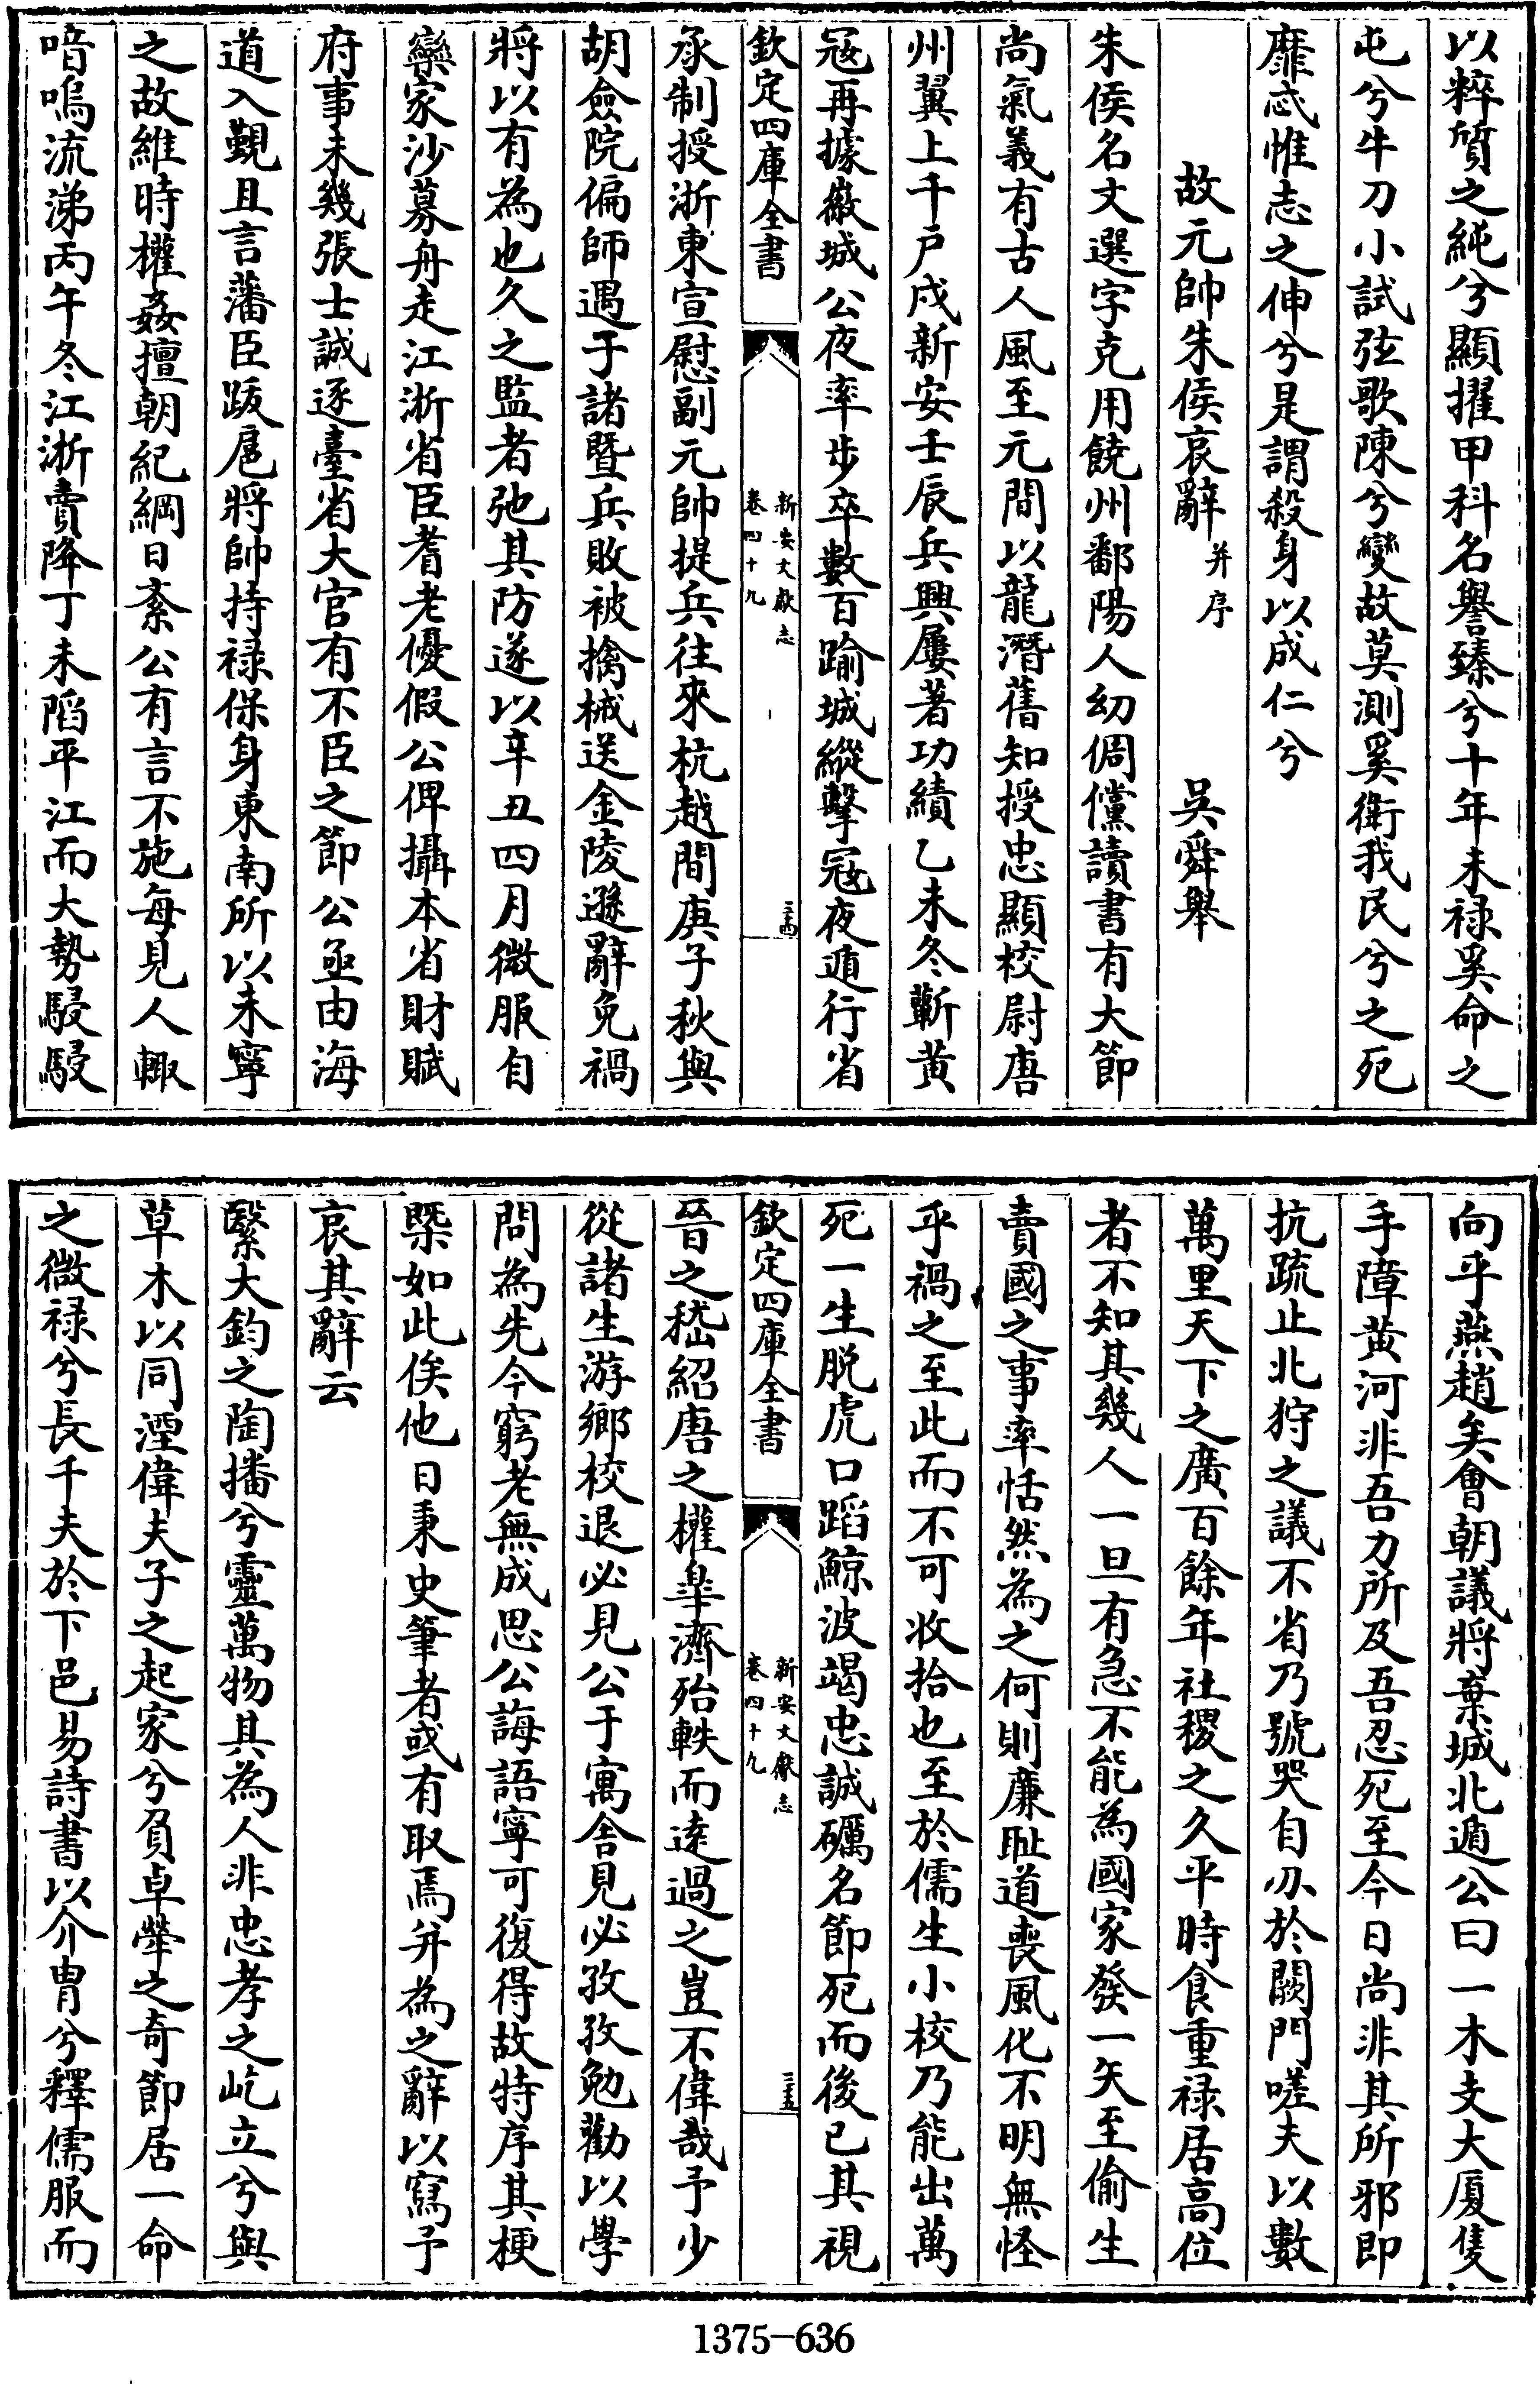 以粹質之純兮顯擢甲科名譽臻兮十年未禄奚命之
屯兮牛刀小試弦歌陳兮變故莫測奚衛我民兮之死
靡忒惟志之伸兮是謂殺身以成仁兮
故元帥朱侯哀辭并序 吳舜舉
朱侯名文選字克用饒州鄱陽人幼倜儻讀書有大節
尚氣義有古人風至元間以龍潛舊知授忠顯校尉唐
州翼上千戸戍新安壬辰兵興屢著功績乙未冬蘄黄
冦再據徽城公夜率步卒數百踰城縱擊冦夜遁行省
欽定四庫全書 新安文獻志 卷四十九 三十四
承制授浙東宣慰副元帥提兵往來杭越間庚子秋與
胡僉院偏師遇于諸暨兵敗被擒械送金陵遜辭免禍
將以有為也久之監者弛其防遂以辛丑四月微服自
欒家沙募舟走江浙省臣耆老優假公俾攝本省財賦
府事未幾張士誠逐臺省大官有不臣之節公亟由海
道入覲且言藩臣䟦扈將帥持禄保身東南所以未寧
之故維時權姦擅朝紀綱日紊公有言不施每見人輙
喑嗚流涕丙午冬江浙賣降丁未䧟平江而大勢駸駸
向乎燕趙矣㑹朝議將棄城北遁公曰一木支大厦隻
手障黄河非吾力所及吾忍死至今日尚非其所邪即
抗疏止北狩之議不省乃號哭自刅於闕門嗟夫以數
萬里天下之廣百餘年社稷之久平時食重禄居高位
者不知其幾人一旦有急不能為國家發一矢至偷生
賣國之事率恬然為之何則廉耻道喪風化不明無怪
乎禍之至此而不可收拾也至於儒生小校乃能出萬
死一生脱虎口蹈鯨波竭忠誠礪名節死而後已其視
欽定四庫全書 新安文獻志 卷四十九 三十五
晉之嵇紹唐之權臯濟殆軼而逺過之豈不偉哉予少
從諸生游鄉校退必見公于寓舍見必孜孜勉勸以學
問為先今窮老無成思公誨語寧可復得故特序其梗
槩如此俟他日秉史筆者或有取焉并為之辭以寫予
哀其辭云
繄大鈞之陶播兮靈萬物其為人非忠孝之屹立兮與
草木以同湮偉夫子之起家兮負卓犖之奇節居一命
之微禄兮長千夫於下邑易詩書以介胄兮釋儒服而
1375-636